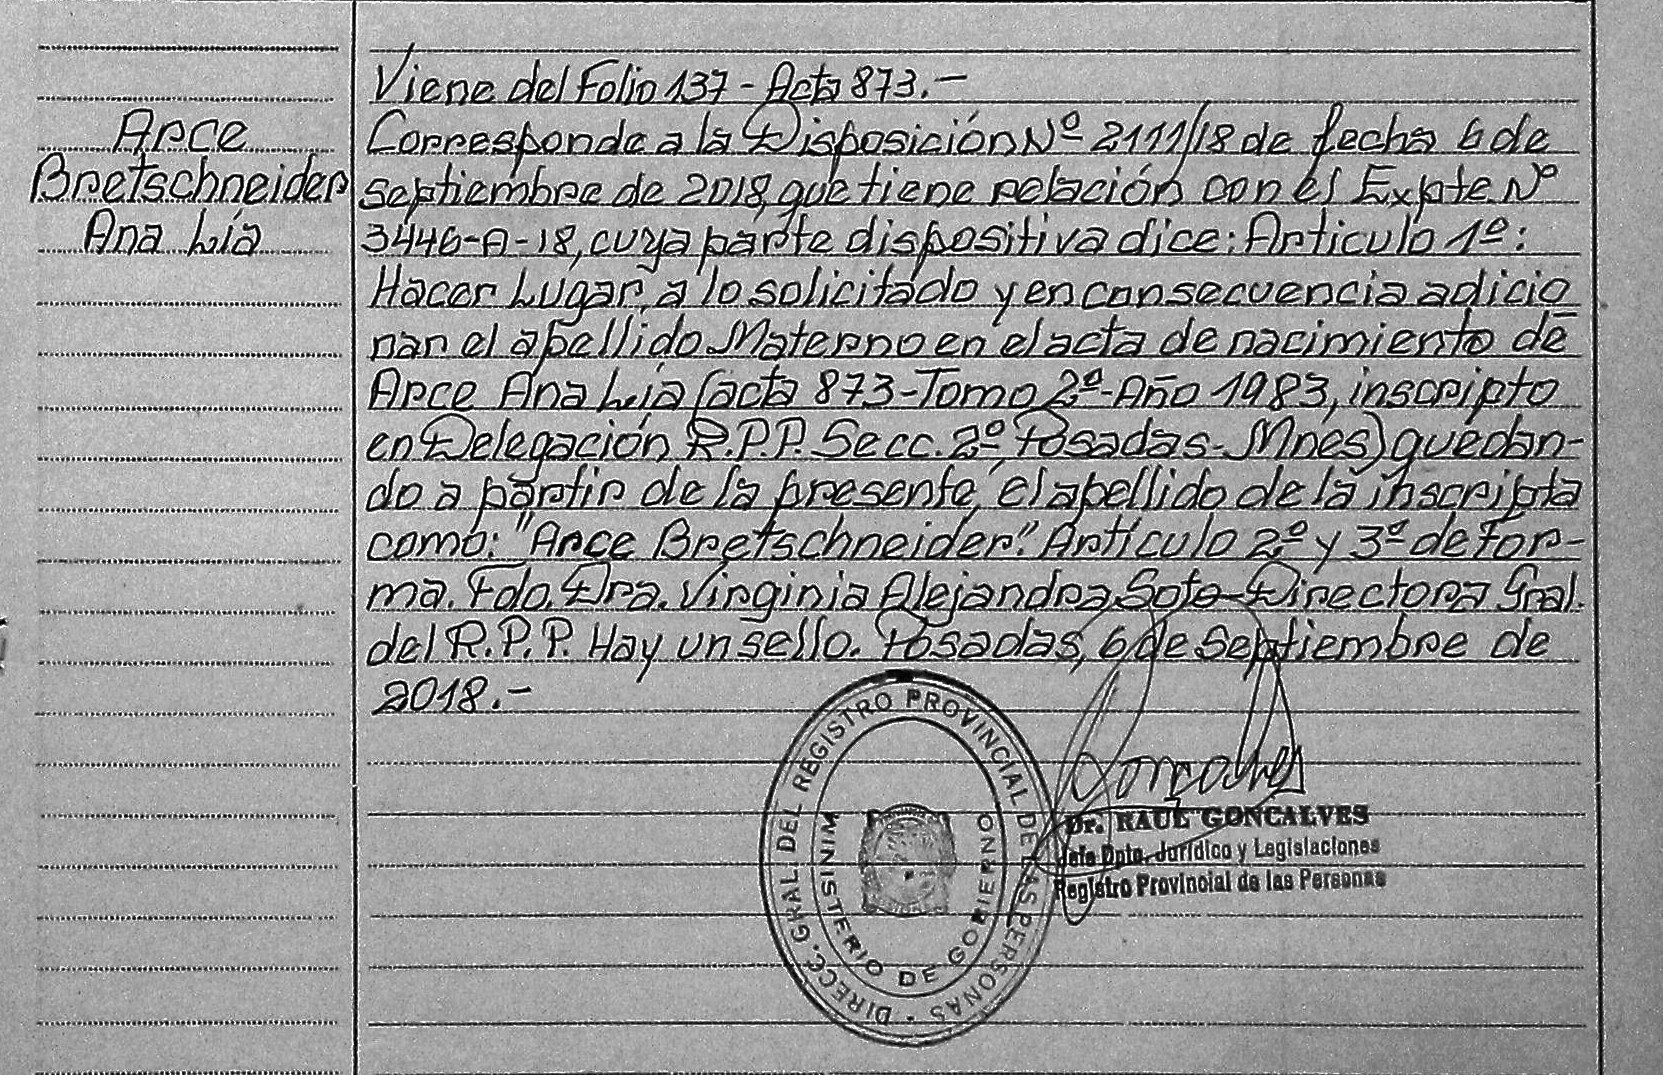 Arce
Bretschneider
Ana Lía
Viene del Folio 137 - Acta 873.-
Corresponde a la Disposición Nº 2111/18 de fecha 6 de
septiembre de 2018, que tiene relación con el Expte. Nº
3446-A-18, cuya parte dispositiva dice: Artículo 1º:
Hacer Lugar, a lo solicitado y en consecuencia adicio
nar el apellido Materno en el acta de nacimiento de
Arce Ana Lía (acta 873-Tomo 2º-Año 1983, inscripto
en Delegación R.P.P. Secc. 2º, Posadas-Mnes) quedan-
do a partir de la presente, el apellido de la inscripta
como: "Arce Bretschneider". Artículo 2º y 3º de For-
ma. Fdo. Dra. Virginia Alejandra Soto-Directora Gral.
del R.P.P. Hay un sello. Posadas, 6 de Septiembre de
2018.-
DIRECC. GRAL. DEL REGISTRO PROVINCIAL DE LAS PERSONAS
MINISTERIO DE GOBIERNO
Dr. RAUL GONCALVES
Jefe Dpto. Jurídico y Legislaciones
Registro Provincial de las Personas